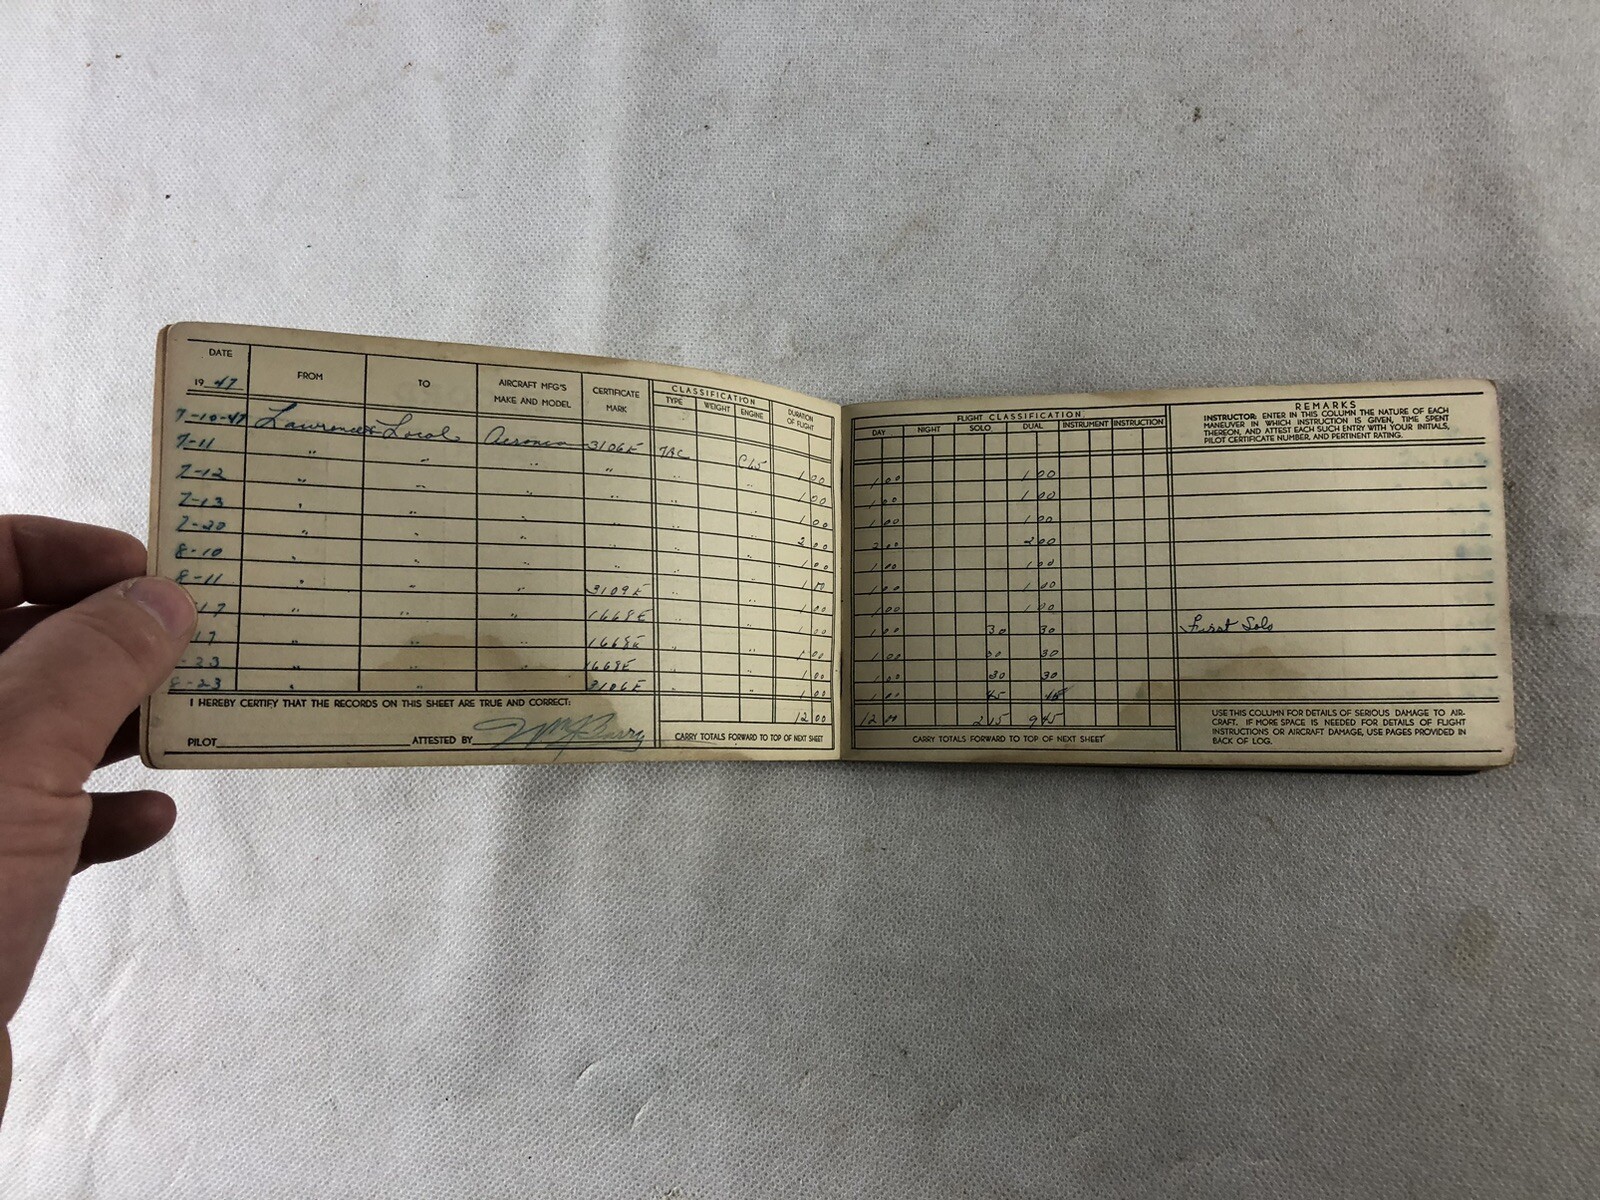 DATE FROM TO AIRCRAFT MFG'S MAKE AND MODEL CERTIFICATE MARK CLASSIFICATION TYPE WEIGHT ENGINE DURATION OF FLIGHT
19 47
7-10-47 Local 3106E 1 00
7-11 " " " " " " 1 00
7-12 " " " " " 1 00
7-13 " " " " " 2 00
7-20 " " " " " 1 00
8-10 " " " " "
8-11 " " " 3109E " " 1 00
17 " " " 1668E " " 1 00
17 " " " 1668E " " 1 00
-23 " " " 1668E " " 1 00
8-23 " 3106E " " 1 00
12 00
I HEREBY CERTIFY THAT THE RECORDS ON THIS SHEET ARE TRUE AND CORRECT:
PILOT ATTESTED BY
CARRY TOTALS FORWARD TO TOP OF NEXT SHEET
FLIGHT CLASSIFICATION
DAY NIGHT SOLO DUAL INSTRUMENT INSTRUCTION
REMARKS
INSTRUCTOR: ENTER IN THIS COLUMN THE NATURE OF EACH
MANEUVER IN WHICH INSTRUCTION IS GIVEN, TIME SPENT
THEREON, AND ATTEST EACH SUCH ENTRY WITH YOUR INITIALS,
PILOT CERTIFICATE NUMBER, AND PERTINENT RATING.
1 00 1 00
1 00 1 00
1 00 1 00
2 00 2 00
1 00 1 00
1 00 1 00
1 00 1 00
1 00 30 30 First Solo
1 00 30 30
1 00 30 30
1 00 45
12 00 2 15 9 45
CARRY TOTALS FORWARD TO TOP OF NEXT SHEET
USE THIS COLUMN FOR DETAILS OF SERIOUS DAMAGE TO AIR-
CRAFT. IF MORE SPACE IS NEEDED FOR DETAILS OF FLIGHT
INSTRUCTIONS OR AIRCRAFT DAMAGE, USE PAGES PROVIDED IN
BACK OF LOG.